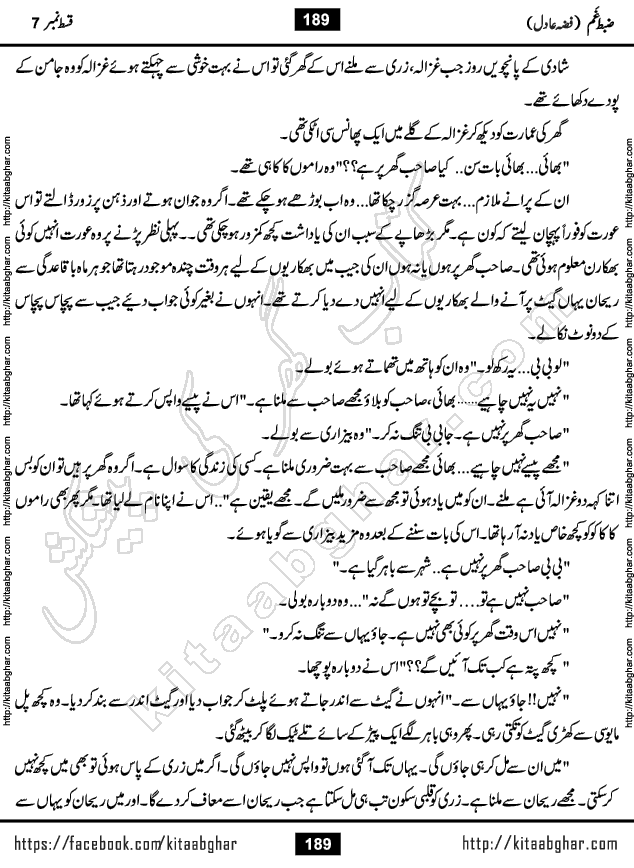 ضبطِ غم (فضہ عادل) 189 قسط نمبر 7
شادی کے پانچویں روز جب غزالہ، زری سے ملنے اس کے گھر گئی تو اس نے بہت خوشی سے چہکتے ہوئے غزالہ کو وہ جامن کے
پودے دکھائے تھے۔
گھر کی عمارت کو دیکھ کر غزالہ کے گلے میں ایک پھانس سی اٹکی تھی۔
"بھائی... بھائی بات سن.. کیا صاحب گھر پر ہے؟؟" وہ راموں کاکا ہی تھے۔
ان کے پرانے ملازم... بہت عرصہ گزر چکا تھا... وہ اب بوڑھے ہو چکے تھے۔ اگر وہ جوان ہوتے اور ذہن پر زور ڈالتے تو اس
عورت کو فوراً پہچان لیتے کہ کون ہے۔ مگر بڑھاپے کے سبب ان کی یاداشت کچھ کمزور ہو چکی تھی.. پہلی نظر پڑنے پر وہ عورت انہیں کوئی
بھکارن معلوم ہوئی تھی۔ صاحب گھر پر ہوں یا نہ ہوں ان کی جیب میں بھکاریوں کے لیے ہر وقت چندہ موجود رہتا تھا جو ہر ماہ باقاعدگی سے
ریحان یہاں گیٹ پر آنے والے بھکاریوں کے لیے انہیں دے دیا کرتے تھے۔ انہوں نے بغیر کوئی جواب دیئے جیب سے پچاس پچاس
کے دو نوٹ نکالے۔
"لو بی بی... یہ رکھ لو۔" وہ ان کو ہاتھ میں تھماتے ہوئے بولے۔
"نہیں یہ نہیں چاہیے...... بھائی، صاحب کو بلاؤ مجھے صاحب سے ملنا ہے۔" اس نے پیسے واپس کرتے ہوئے کہا تھا۔
"صاحب گھر پر نہیں ہے۔ جا بی بی تنگ نہ کر۔" وہ بیزاری سے بولے۔
"مجھے پیسے نہیں چاہیے... بھائی مجھے صاحب سے بہت ضروری ملنا ہے۔ کسی کی زندگی کا سوال ہے۔ اگر وہ گھر پر ہیں تو ان کو بس
اتنا کہہ دو غزالہ آئی ہے ملنے۔ ان کو میں یاد ہوئی تو مجھ سے ضرور ملیں گے۔ مجھے یقین ہے".. اس نے اپنا نام لے لیا تھا۔ مگر پھر بھی راموں
کاکا کو کچھ خاص یاد نہ آ رہا تھا۔ اس کی بات سننے کے بعد وہ مزید بیزاری سے گویا ہوئے۔
"بی بی صاحب گھر پر نہیں ہے.. شہر سے باہر گیا ہے۔"
"صاحب نہیں ہے تو.... تو بچے تو ہوں گے نہ"... وہ دوبارہ بولی۔
"نہیں اس وقت گھر پر کوئی بھی نہیں ہے۔ جاؤ یہاں سے تنگ نہ کرو۔"
"کچھ پتہ ہے کب تک آئیں گے؟؟" اس نے دوبارہ پوچھا۔
"نہیں!! جاؤ یہاں سے۔" انہوں نے گیٹ سے اندر جاتے ہوئے پلٹ کر جواب دیا اور گیٹ اندر سے بند کر دیا۔ وہ کچھ پل
مایوسی سے کھڑی گیٹ کو تکتی رہی۔ پھر وہی باہر لگے ایک پیڑ کے سائے تلے ٹیک لگا کر بیٹھ گئی۔
"میں ان سے مل کر ہی جاؤں گی۔ یہاں تک آ گئی ہوں تو واپس نہیں جاؤں گی۔ اگر میں زری کے پاس ہوئی تو بھی میں کچھ نہیں
کر سکتی۔ مجھے ریحان سے ملنا ہے۔ زری کو قلبی سکون تب ہی مل سکتا ہے جب ریحان اسے معاف کر دے گا۔ اور میں ریحان کو یہاں سے
https://facebook.com/kitaabghar 189 http://kitaabghar.com
http://kitaabghar.com http://kitaabghar.com http://kitaabghar.com http://kitaabghar.com http://kitaabghar.com http://kitaabghar.com
http://kitaabghar.com http://kitaabghar.com http://kitaabghar.com http://kitaabghar.com http://kitaabghar.com http://kitaabghar.com
کتاب گھر کی پیشکش
kitaabghar.com